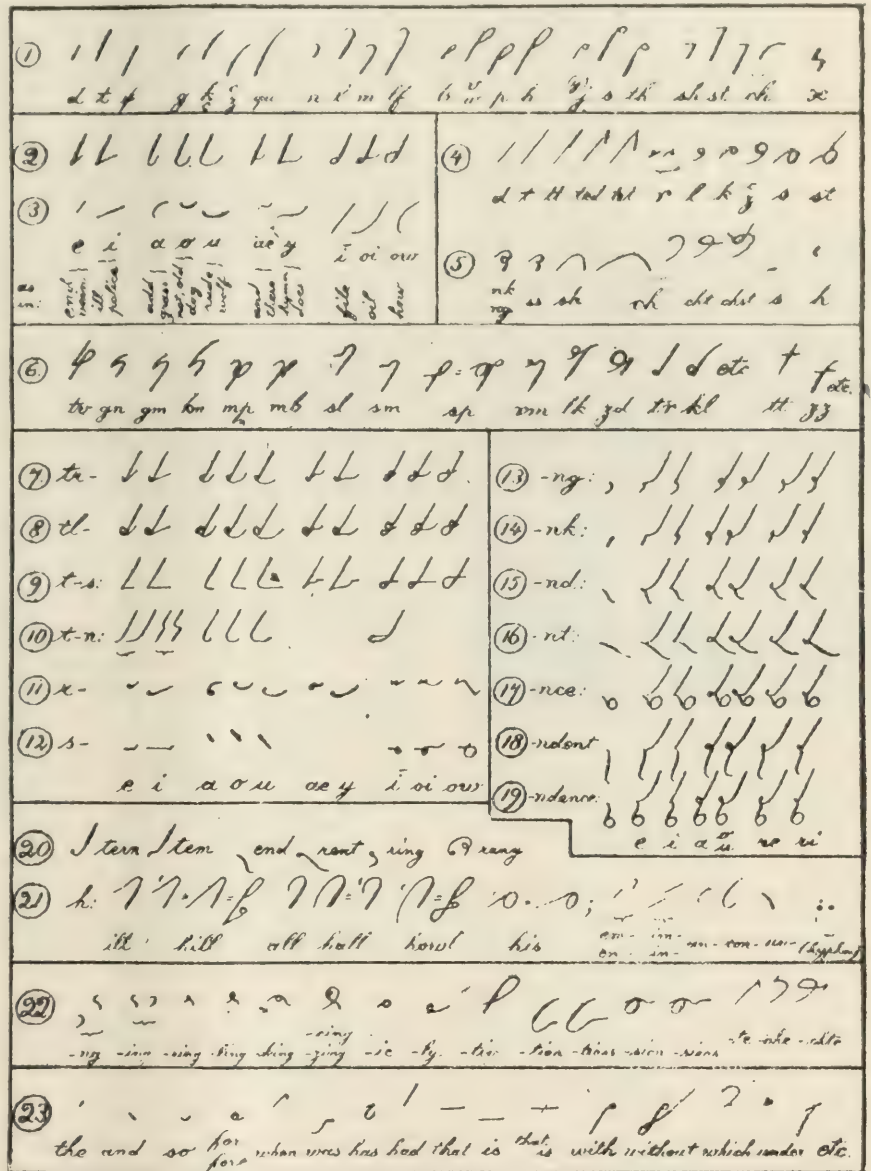 ①
d t f g k z qu n l m lf b v w p h j s th sh st ch x
②
③
e i a o u ae y ī oi ow
as in: end ill police add grass not, old dog rude wolf and chase hymn does file oil how
④
d t tt ted r l k g z s st
⑤
nk ng ss sk ch cht chst s h
⑥ etc etc.
tw gn gm kn mp mb sl sm sp mn lk zd tr kl tt zz
⑦ tr-
⑧ tl-
⑨ t-s:
⑩ t-n:
⑪ r-
⑫ s-
e i a o u ae y ī oi ow
⑬ -ng:
⑭ -nk:
⑮ -nd:
⑯ -nt:
⑰ -nce:
⑱ -ndent
⑲ -ndence:
e i a o u re ri
⑳ tern tem end rent ring rang
㉑ h:
ill hill all hall howl his em- en- im- in- un- con- (hyphen)
㉒
-ng -ing -ring -ling -king -zing -eing -ic -ty -tive -tion -tions -sion -sions -te -che -chte
㉓
the and so for fore when was has had that is that is with without which under etc.